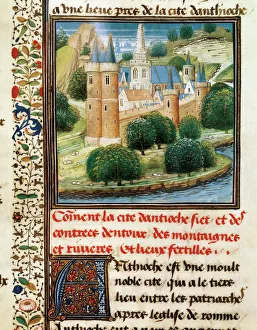 a vne lieue pres de la cite danthioche
Coment la cite dantioche siet et des
contrees dentour des montaignes
et riuieres et lieux fertilles
Anthioche est vne moult
noble cite qui a le tiers
lieu entre les patriarches
apres leglise de romme